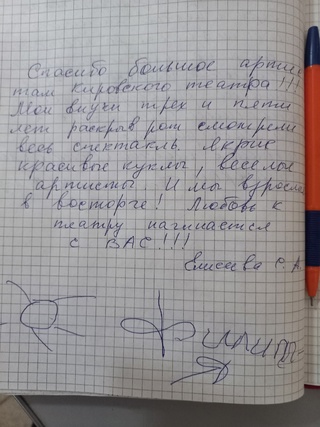 Спасибо большое артис
там Кировского театра!!!
Мои внучи трех и пяти
лет раскрыв рот смотрели
весь спектакль. Яркие
красивые куклы, весёлые
артисты. И мы взрослые
в восторге! Любовь к
театру начинается
с ВАС!!!
Елисеева С.А.
Филипп